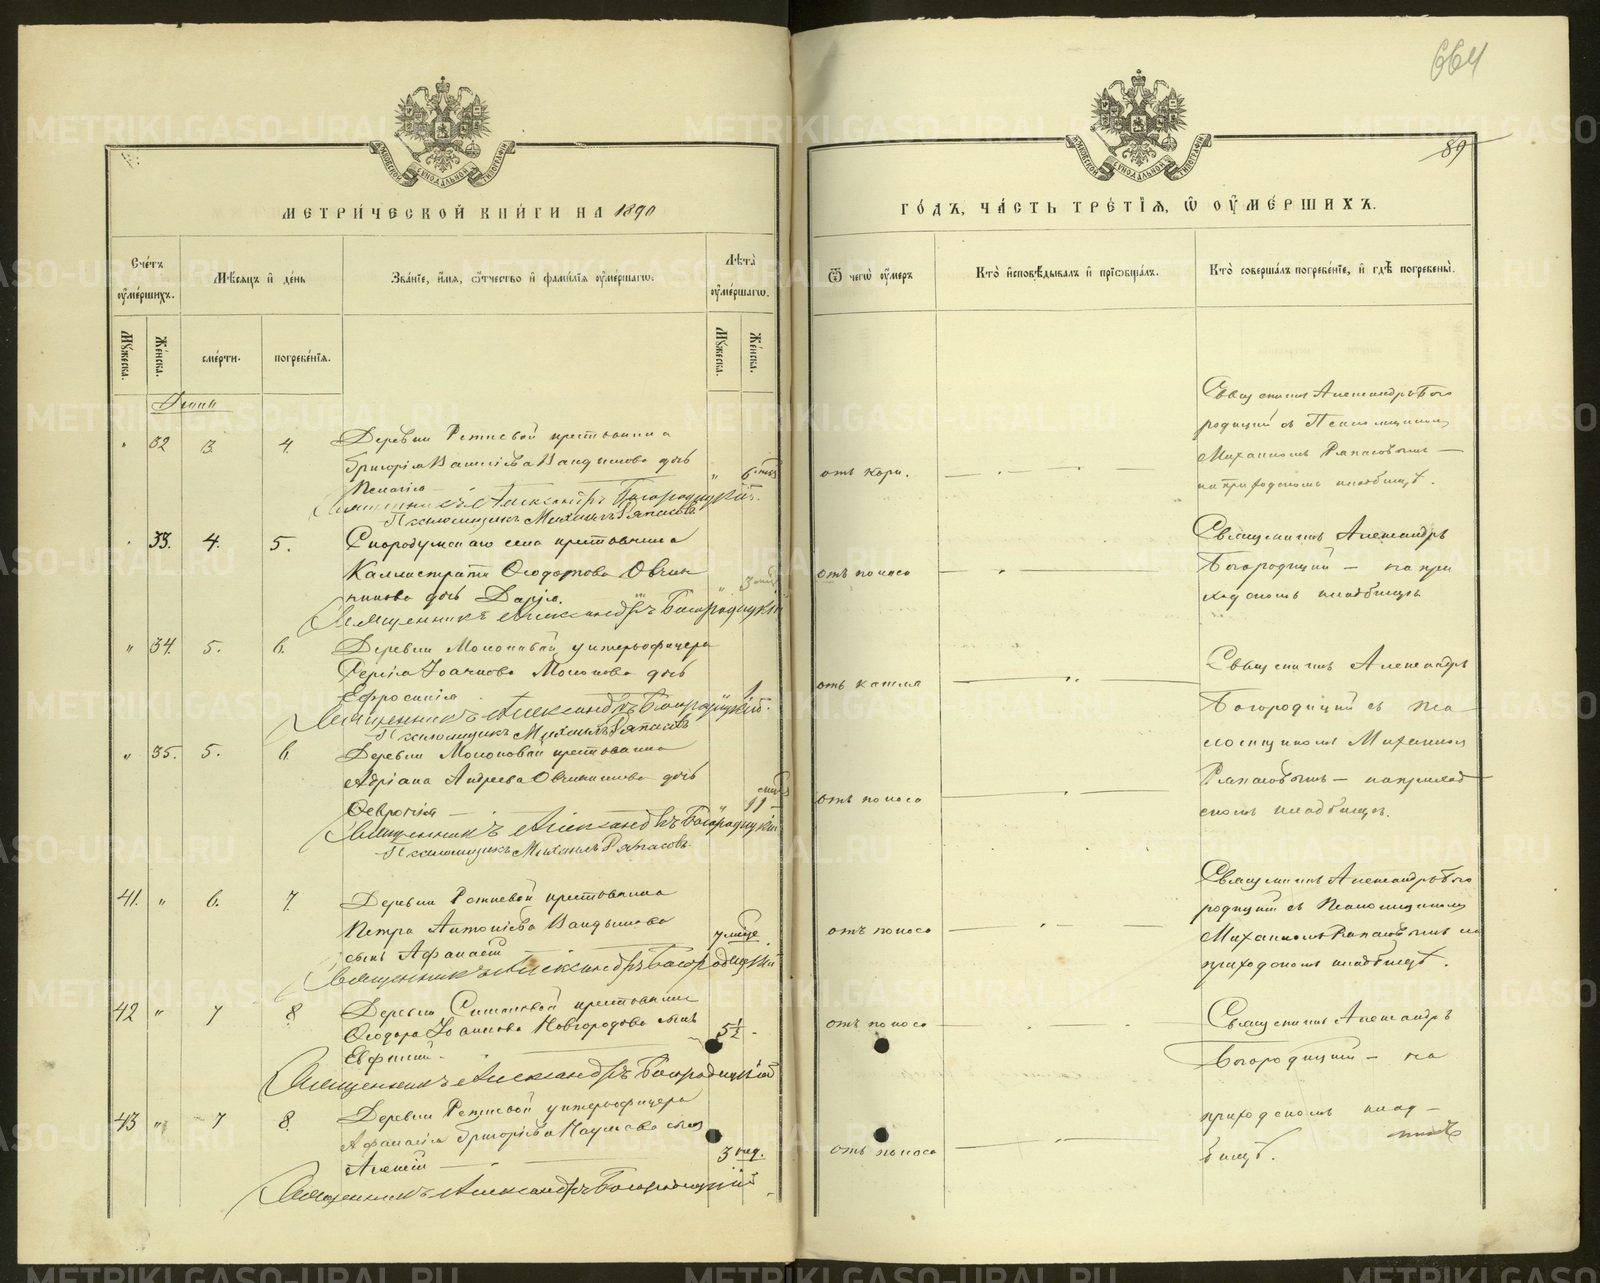 664
89
МЕТРИ́ЧЕСКОЙ КНИ́ГИ НА 1890
ГО́ДЪ, ЧА́СТЬ ТРЕ́ТІѦ, Ѿ ОУ҆МЕ́РШИХЪ.
Сче́тъ оу҆ме́ршихъ.
Мѣ́сѧцъ и҆ де́нь
Зва́нїе, и҆́мѧ, ѻ҆́тчество и҆ фамилїѧ оу҆ме́ршагѡ.
Лѣ́та оу҆ме́ршагѡ.
Ѿ чегѡ̀ оу҆́меръ
Кто̀ и҆сповѣ́дывалъ и҆ прїѡбща́лъ.
Кто̀ соверша́лъ погребе́нїе, и҆ гдѣ̀ погребены̀.
Мꙋ́жеска.
Же́нска.
сме́рти.
погребе́нїѧ.
Мꙋ́жеска.
Же́нска.
" 32 3. 4.
Григорія Василіева Вандышова дочь
Пелагія
Священникъ Александръ Богородицкій.
Псаломщикъ Михаилъ Ряпасовъ
отъ кори.
Священникъ Александръ Бого
родицкій съ Псаломщикомъ
Михаиломъ Ряпасовымъ —
на приходскомъ кладбищѣ.
" 33. 4. 5.
Скородумскаго села крестьянина
Каллистрата Ѳеодотова Овчин
никова дочь Дарія.
Священникъ Александръ Богородицкій
отъ поноса
Священникъ Александръ
Богородицкій — на при
ходскомъ кладбищѣ
" 34. 5. 6.
Деревни Мокопавой унтеръофицера
Сергія Іоаннова Моконова дочь
Ефросинія
1
Священникъ Александръ Богородицкій.
Псаломщикъ Михаилъ Ряпасовъ
отъ кашля
Священникъ Александръ
Богородицкій съ Пса
ломщикомъ Михаиломъ
Ряпасовымъ — на приход
скомъ кладбищѣ.
" 35. 5. 6.
крестьянина
Адріана Андреева Овчинникова дочь
Ѳевронія
11
Священникъ Александръ Богородицкій
Псаломщикъ Михаилъ Ряпасовъ
отъ поноса
41. " 6. 7.
крестьянина
Петра Антоніева Вандышова
сынъ Афанасій
Священникъ Александръ Богородицкій
отъ поноса
Священникъ Александръ Бого
родицкій съ Псаломщикомъ
Михаиломъ Ряпасовымъ на
приходскомъ кладбищѣ.
42 " 7 8.
крестьянина
Ѳеодора Іоаннова Новгородова сынъ
Евфимій.
5½
Священникъ Александръ Богородицкій
отъ поноса
Священникъ Александръ
Богородицкій — на
приходскомъ клад-
бищѣ.
43 " 7 8.
унтеръофицера
Афанасія Григоріева Наумова сынъ
Алексій
3 нед.
Священникъ Александръ Богородицкій
отъ поноса